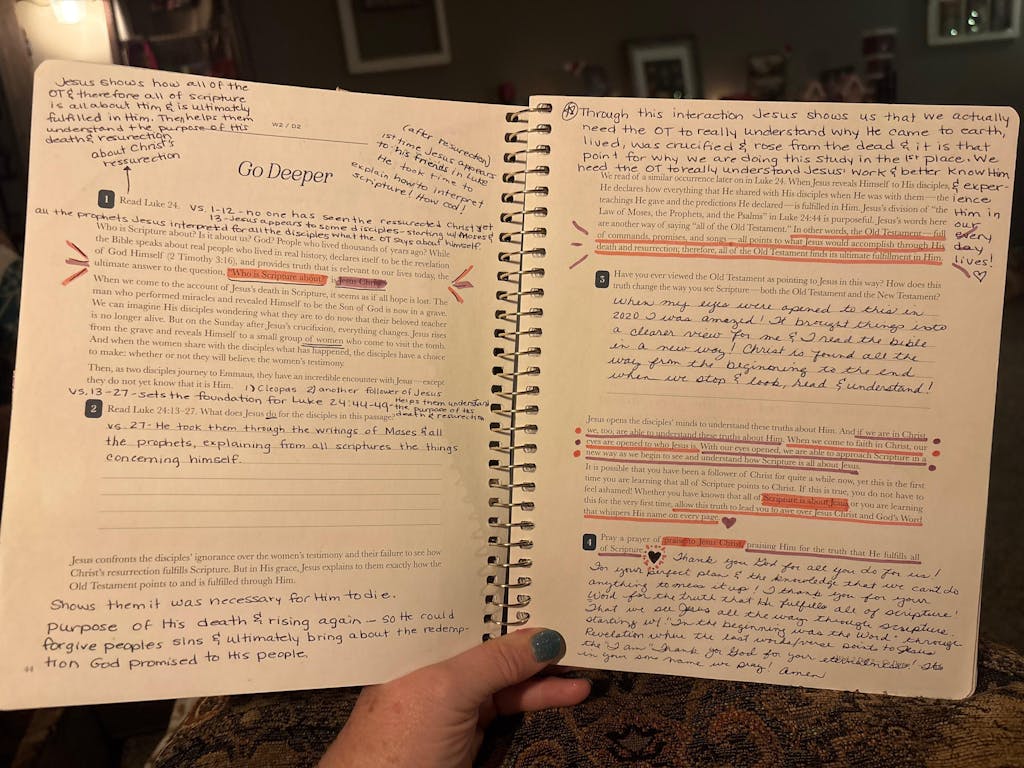 Jesus shows how all of the
OT & therefore all of scripture
is all about Him & is ultimately
fulfilled in Him. Then, helps them
understand the purpose of His
death & resurection
about Christ's
ressurection
W2 / D2
Go Deeper
(after resurection)
1st time Jesus appears
to his friends in Luke
He took time to
explain how to interpret
scripture! How cool!
1 Read Luke 24.
vs. 1-12 - no one has seen the ressurected Christ yet
13 - Jesus appears to some disciples - starting w/ Moses &
all the prophets Jesus interpreted for all the disciples what the OT says about himself
Who is Scripture about? Is it about us? God? People who lived thousands of years ago? While
the Bible speaks about real people who lived in real history, declares itself to be the revelation
of God Himself (2 Timothy 3:16), and provides truth that is relevant to our lives today, the
ultimate answer to the question, "Who is Scripture about" is Jesus Christ.
When we come to the account of Jesus's death in Scripture, it seems as if all hope is lost. The
man who performed miracles and revealed Himself to be the Son of God is now in a grave.
We can imagine His disciples wondering what they are to do now that their beloved teacher
is no longer alive. But on the Sunday after Jesus's crucifixion, everything changes. Jesus rises
from the grave and reveals Himself to a small group of women who come to visit the tomb.
And when the women share with the disciples what has happened, the disciples have a choice
to make: whether or not they will believe the women's testimony.
Then, as two disciples journey to Emmaus, they have an incredible encounter with Jesus—except
they do not yet know that it is Him. 1) Cleopas 2) another follower of Jesus
vs. 13-27 - Sets the foundation for Luke 24:44-49 - Helps them understand
the purpose of His
death & resurection
2 Read Luke 24:13-27. What does Jesus do for the disciples in this passage?
vs. 27 - He took them through the writings of Moses & all
the prophets, explaining from all scriptures the things
concerning himself.
Jesus confronts the disciples' ignorance over the women's testimony and their failure to see how
Christ's resurrection fulfills Scripture. But in His grace, Jesus explains to them exactly how the
Old Testament points to and is fulfilled through Him.
Shows them it was necessary for Him to die.
purpose of His death & rising again — so He could
forgive peoples sins & ultimately bring about the redemp-
tion God promised to His people.
Through this interaction Jesus shows us that we actually
need the OT to really understand why He came to earth,
lived, was crucified & rose from the dead & it is that
point for why we are doing this study in the 1st place. We
need the OT to really understand Jesus' work & better know Him
& exper-
ience
Him in
our
every
day
lives!
We read of a similar occurrence later on in Luke 24. When Jesus reveals Himself to His disciples,
He declares how everything that He shared with His disciples when He was with them—the
teachings He gave and the predictions He declared—is fulfilled in Him. Jesus's division of "the
Law of Moses, the Prophets, and the Psalms" in Luke 24:44 is purposeful. Jesus's words here
are another way of saying "all of the Old Testament." In other words, the Old Testament—full
of commands, promises, and songs—all points to what Jesus would accomplish through His
death and resurrection; therefore, all of the Old Testament finds its ultimate fulfillment in Him.
3 Have you ever viewed the Old Testament as pointing to Jesus in this way? How does this
truth change the way you see Scripture—both the Old Testament and the New Testament?
When my eyes were opened to this in
2020 I was amazed! It brought things into
a clearer view for me & I read the bible
in a new way! Christ is found all the
way from the beginning to the end
when we stop & look, read & understand!
Jesus opens the disciples' minds to understand these truths about Him. And if we are in Christ,
we, too, are able to understand these truths about Him. When we come to faith in Christ, our
eyes are opened to who Jesus is. With our eyes opened, we are able to approach Scripture in a
new way as we begin to see and understand how Scripture is all about Jesus.
It is possible that you have been a follower of Christ for quite a while now, yet this is the first
time you are learning that all of Scripture points to Christ. If this is true, you do not have to
feel ashamed! Whether you have known that all of Scripture is about Jesus or you are learning
this for the very first time, allow this truth to lead you to awe over Jesus Christ and God's Word
that whispers His name on every page.
4 Pray a prayer of praise to Jesus Christ, praising Him for the truth that He fulfills all
of Scripture.
Thank you God for all you do for us!
For your perfect plan & the knowledge that we can't do
anything to mess it up! I thank you for your
Word for the truth that He fulfills all of scripture.
That we see Jesus all the way through scripture.
Starting w/ "In the beginning was the Word" through
Revelation where the last words/verse point to Jesus
the "I am" Thank you God for your It's
in your sons name we pray! Amen